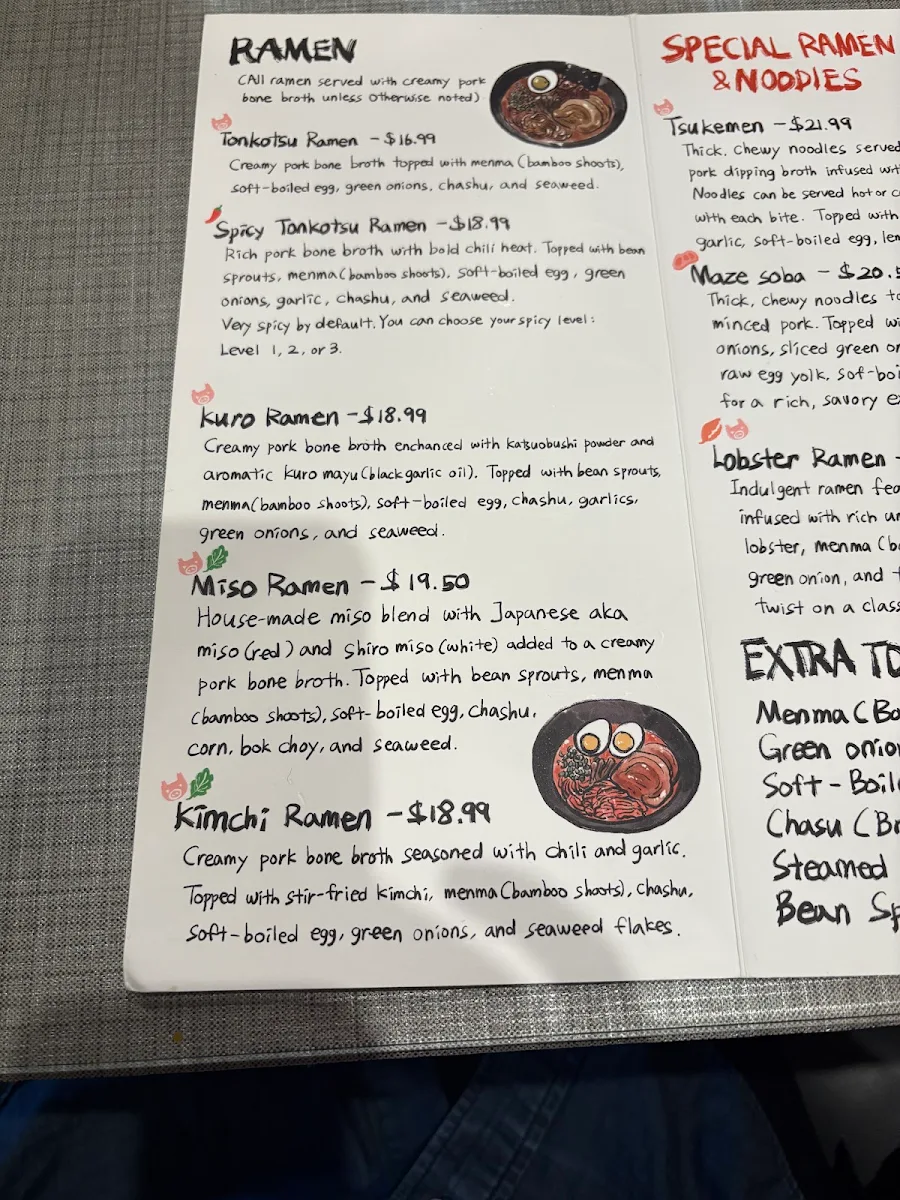 RAMEN
(All ramen served with creamy pork
bone broth unless otherwise noted)
Tonkotsu Ramen - $16.99
Creamy pork bone broth topped with menma (bamboo shoots),
soft-boiled egg, green onions, chashu, and seaweed.
Spicy Tonkotsu Ramen - $18.99
Rich pork bone broth with bold chili heat. Topped with bean
sprouts, menma (bamboo shoots), soft-boiled egg, green
onions, garlic, chashu, and seaweed.
Very spicy by default. You can choose your spicy level:
Level 1, 2, or 3.
Kuro Ramen - $18.99
Creamy pork bone broth enchanced with katsuobushi powder and
aromatic kuro mayu (black garlic oil). Topped with bean sprouts,
menma (bamboo shoots), soft-boiled egg, chashu, garlics,
green onions, and seaweed.
Miso Ramen - $19.50
House-made miso blend with Japanese aka
miso (red) and shiro miso (white) added to a creamy
pork bone broth. Topped with bean sprouts, menma
(bamboo shoots), soft-boiled egg, chashu,
corn, bok choy, and seaweed.
Kimchi Ramen - $18.99
Creamy pork bone broth seasoned with chili and garlic.
Topped with stir-fried kimchi, menma (bamboo shoots), chashu,
soft-boiled egg, green onions, and seaweed flakes.
SPECIAL RAMEN
& NOODLES
Tsukemen - $21.99
Thick, chewy noodles served
pork dipping broth infused
Noodles can be served hot or
with each bite. Topped with
garlic, soft-boiled egg,
Maze soba - $20.5
Thick, chewy noodles
minced pork. Topped
onions, sliced green
raw egg yolk, sof-boi
for a rich, savory
Lobster Ramen -
Indulgent ramen
infused with rich
lobster, menma
green onion, and
twist on a class
EXTRA TO
Menma (Bo
Green onio
Soft-Boil
Chasu (Br
Steamed
Bean Sp